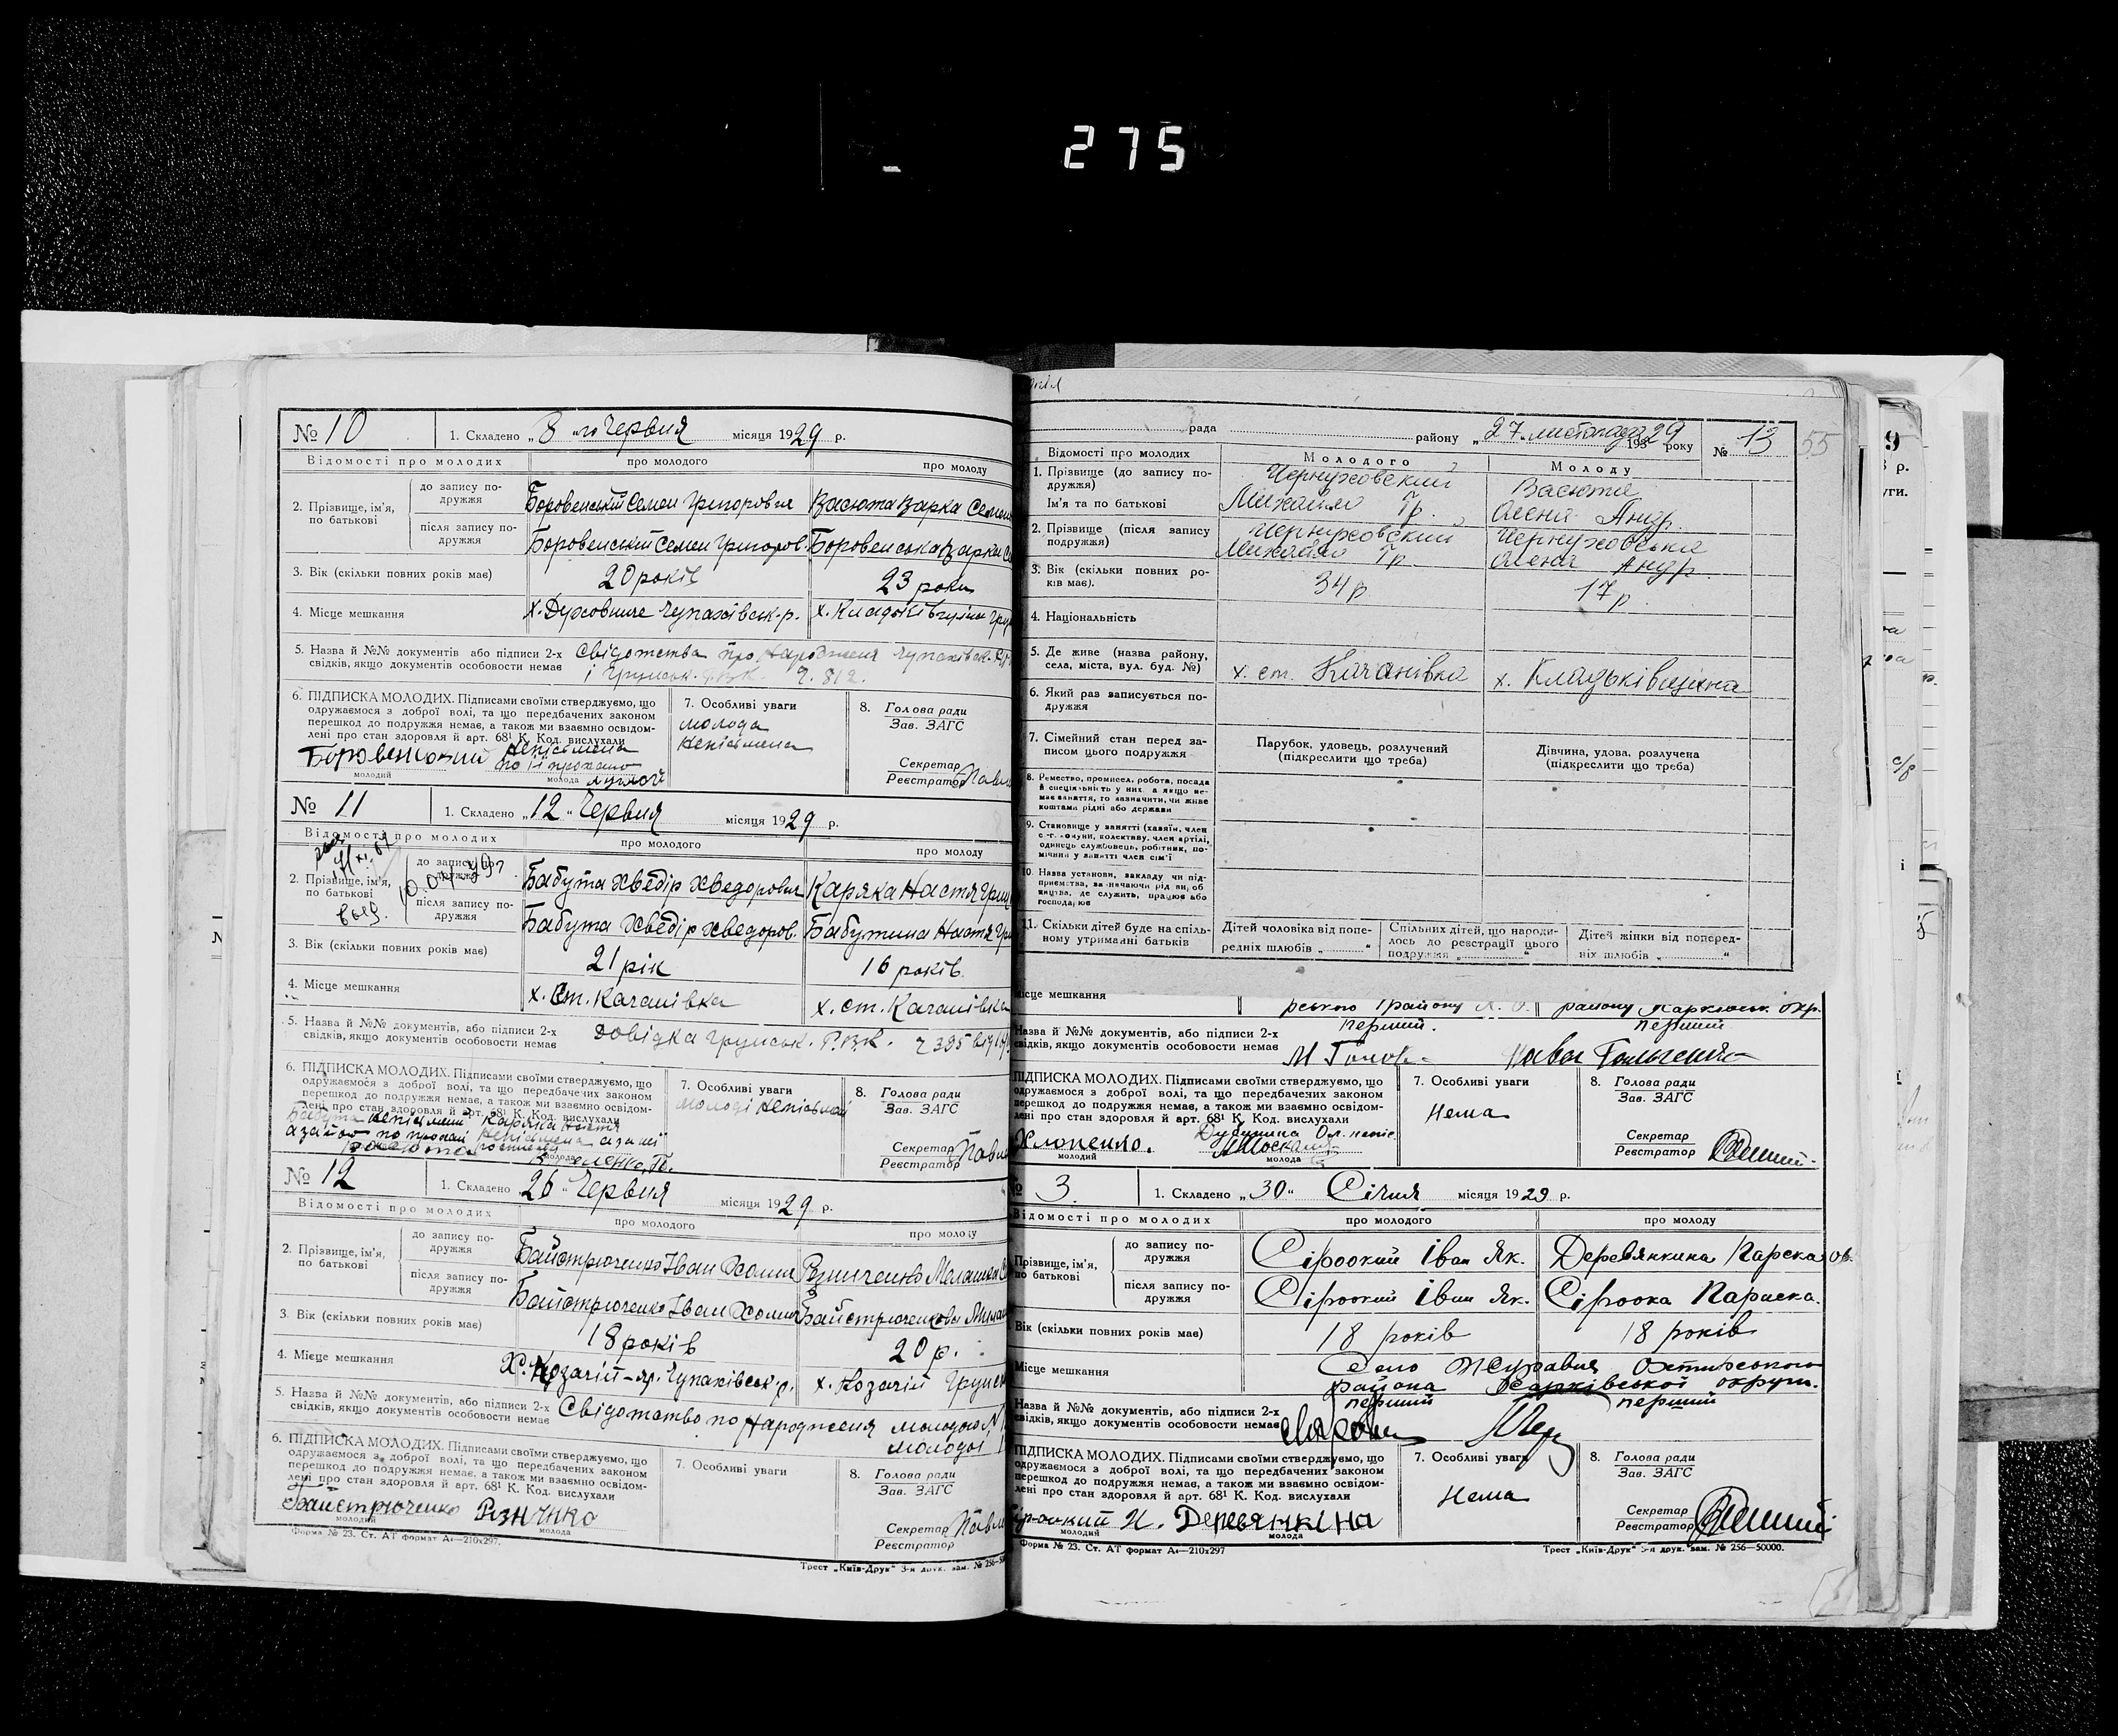 275
№ 10
1. Складено „ 8 “ го Червня місяця 1929 р.
Відомості про молодих
про молодого
про молоду
2. Прізвище, ім'я, по батькові
до запису подружжя
Боровенський Семен Григоровия
Васюта Варка Семен
після запису подружжя
Боровенський Семен Григоров.
Боровенська Варка Се
3. Вік (скільки повних років має)
20 років
23 роки
4. Місце мешкання
х. Духовниче Чупахівськ. р.
х. Кладьківщина Грун
5. Назва й №№ документів або підписи 2-х
свідків, якщо документів особовости немає
Свідотства про Народженя Чупахівськ. Р
і Грунськ. Р.В.К. Ч. 812.
6. ПІДПИСКА МОЛОДИХ. Підписами своїми стверджуємо, що
одружаємося з доброї волі, та що передбачених законом
перешкод до подружжя немає, а також ми взаємно освідом-
лені про стан здоровля й арт. 68¹ К. Код. вислухали
Боровенський
Неписьмена
по її проханю
молодий
молода
7. Особливі уваги
молода
Неписьмена
8. Голова ради
Зав. ЗАГС
Секретар
Реєстратор
Павл
№ 11
1. Складено „ 12 “ Червня місяця 1929 р.
Відомості про молодих
про молодого
про молоду
2. Прізвище, ім'я, по батькові
до запису подружжя
Бабута Хведір Хведоровия
Каряка Настя Гри
після запису подружжя
Бабута Хведір Хведоров.
Бабутина Настя Гри
3. Вік (скільки повних років має)
21 рік
16 років
4. Місце мешкання
х. Ст. Качанівка
х. ст. Качанівка
5. Назва й №№ документів, або підписи 2-х
свідків, якщо документів особовости немає
Довідка Грунськ. Р.В.К. Ч 395 від
6. ПІДПИСКА МОЛОДИХ. Підписами своїми стверджуємо, що
одружаємося з доброї волі, та що передбачених законом
перешкод до подружжя немає, а також ми взаємно освідом-
лені про стан здоровля й арт. 68¹ К. Код. вислухали
Бабута неписьмений Каряка Настя
неписьмена
молода
7. Особливі уваги
молоді неписьмені
8. Голова ради
Зав. ЗАГС
Секретар
Реєстратор
Павл
№ 12
1. Складено 26 “ Червня місяця 1929 р.
Відомості про молодих
про молодого
про молоду
2. Прізвище, ім'я, по батькові
до запису подружжя
Байстрюченко Іван Хомия
Резниченко Мелашка
після запису подружжя
Байстрюченко Іван Хомия
Байстрюченкова Мила
3. Вік (скільки повних років має)
18 років
20 р.
4. Місце мешкання
Х. Козачій-яр. Чупахівськ р.
х. Козачій Грунськ
5. Назва й №№ документів, або підписи 2-х
свідків, якщо документів особовости немає
Свідотство по Народженя молодого №
молодої
6. ПІДПИСКА МОЛОДИХ. Підписами своїми стверджуємо, що
одружаємося з доброї волі, та що передбачених законом
перешкод до подружжя немає, а також ми взаємно освідом-
лені про стан здоровля й арт. 68¹ К. Код. вислухали
Байстрюченко
Різнченко
молодий
молода
7. Особливі уваги
8. Голова ради
Зав. ЗАГС
Секретар
Реєстратор
Павл
Форма № 23. Ст. АТ формат А₄—210х297.
Трест „Київ-Друк“ 3-я друк. зам. № 256—50
рада
району „27„ листопада 29 193 року
№ 13
55
Відомості про молодих
Молодого
Молоду
1. Прізвище (до запису подружжя)
Ім'я та по батькові
Чернуховский
Михайло Гр.
Васюта
Олена Андр.
2. Прізвище (після запису подружжя)
Чернуховский
Михайло Гр.
Чернуховська
Олена Андр.
3. Вік (скільки повних років має).
34 р
17 р.
4. Національність
5. Де живе (назва району, села, міста, вул. буд. №)
х. ст. Качанівка
х. Кладьківщина
6. Який раз записується подружжя
7. Сімейний стан перед записом цього подружжя
Парубок, удовець, розлучений
(підкреслити що треба)
Дівчина, удова, розлучена
(підкреслити що треба)
8. Ремество, промисел, робота, посада
й спеціяльність у них, а якщо не-
має заняття, то зазначити, чи живе
коштами рідні або держави
9. Становище у занятті (хазяїн, член
с.-г. комуни, колективу, член артілі,
одинець службовець, робітник, по-
мічник у занятті член сім'ї
10. Назва установи, закладу чи під-
приємства, зазначаючи рід виоб-
ництва, де служить, працює або
господарює
11. Скільки дітей буде на спіль-
ному утриманні батьків
Дітей чоловіка від попе-
редніх шлюбів „ “
Спільних дітей, що народи-
лось до реєстрації цього
подружжя „ “
Дітей жінки від поперед-
ніх шлюбів „ “
Місце мешкання
району Харківськ. окр.
перший.
перший
Назва й №№ документів, або підписи 2-х
свідків, якщо документів особовости немає
ПІДПИСКА МОЛОДИХ. Підписами своїми стверджуємо, що
одружаємося з доброї волі, та що передбачених законом
перешкод до подружжя немає, а також ми взаємно освідом-
лені про стан здоровля й арт. 68¹ К. Код. вислухали
Хлопенко.
молодий
молода
7. Особливі уваги
Нема
8. Голова ради
Зав. ЗАГС
Секретар
Реєстратор
№ 3.
1. Складено „ 30 “ Січня місяця 1929 р.
Відомості про молодих
про молодого
про молоду
Прізвище, ім'я, по батькові
до запису подружжя
Сіроокий Іван Як.
Деревянкина Параска Ов.
після запису подружжя
Сіроокий Іван Як.
Сіроока Параска.
Вік (скільки повних років має)
18 років
18 років
Місце мешкання
Село Журавня Охтирського
району Харківської округи.
перший
перший
Назва й №№ документів, або підписи 2-х
свідків, якщо документів особовости немає
ПІДПИСКА МОЛОДИХ. Підписами своїми стверджуємо, що
одружаємося з доброї волі, та що передбачених законом
перешкод до подружжя немає, а також ми взаємно освідом-
лені про стан здоровля й арт. 68¹ К. Код. вислухали
Сіроокий И. Деревянкіна
молодий
молода
7. Особливі уваги
Нема
8. Голова ради
Зав. ЗАГС
Секретар
Реєстратор
Форма № 23. Ст. АТ формат А₄—210х297
Трест „Київ-Друк“ 3-я друк. зам. № 256—50000.